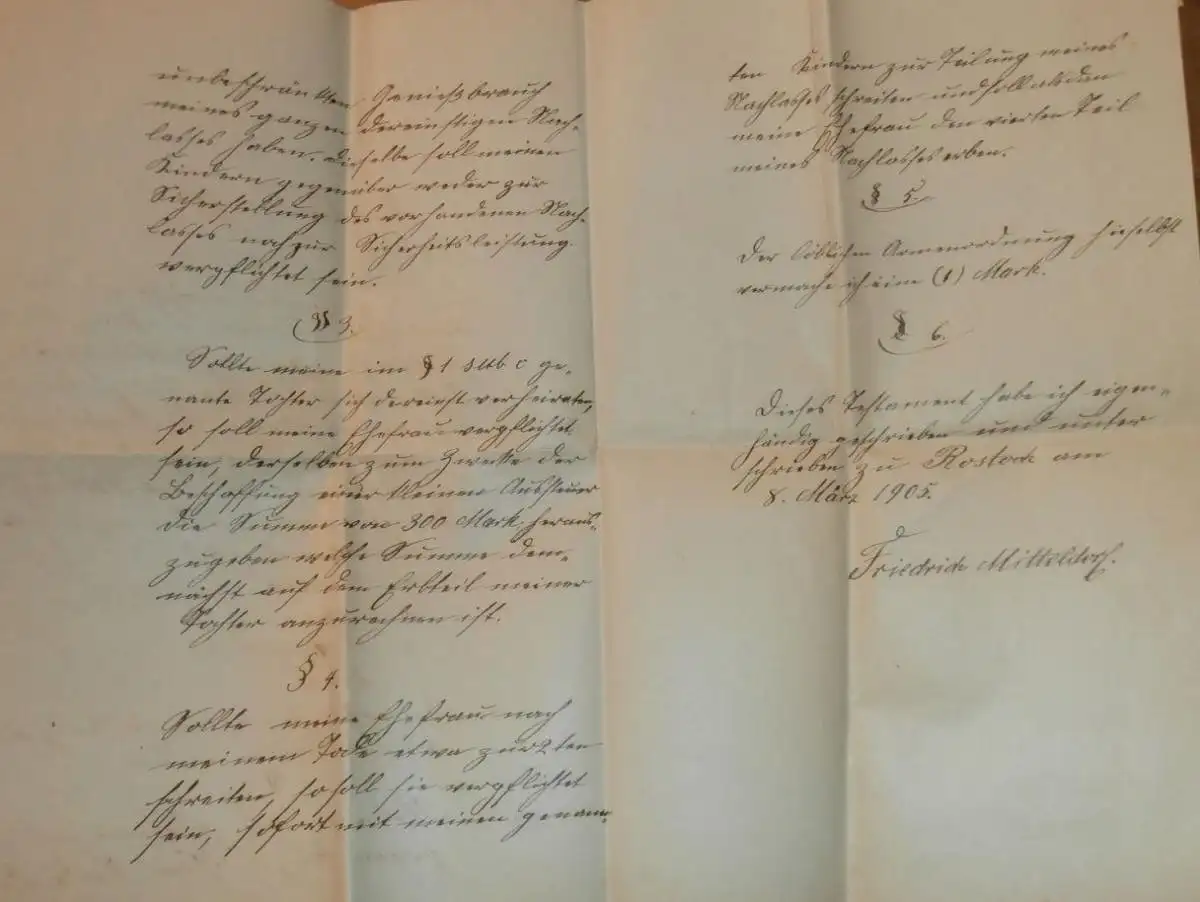 unbeschränkten Genießbrauch
meines ganzen dereinstigen Nach-
lasses haben. Dieselbe soll meinen
Kindern gegenüber weder zur
Sicherstellung des vorhandenen Nach-
lasses noch zur Sicherheitsleistung
verpflichtet sein.
§ 3.
Sollte meine im § 1 sub c ge-
nante Tochter sich dereinst verheiraten,
so soll meine Ehefrau verpflichtet
sein, derselben zum Zwecke der
Beschaffung einer kleinen Aussteuer
die Summe von 300 Mark heraus-
zugeben welche Summe dem-
nächst auf dem Erbteil meiner
Tochter anzurechnen ist.
§ 4.
Sollte meine Ehefrau nach
meinem Tode etwa zur 2ten
schreiten, so soll sie verpflichtet
sein, sofort mit meinen genann-
ten Kindern zur Teilung meines
Nachlasses schreiten und soll alsdan
meine Ehefrau den vierten Teil
meines Nachlasses erben.
§ 5.
Der löblichen Armenordnung hieselbst
vermache ich eine (1) Mark.
§ 6.
Dieses Testament habe ich eigen-
händig geschrieben und unter
schrieben zu Rostock am
8. März 1905.
Friedrich Mitteldorf.